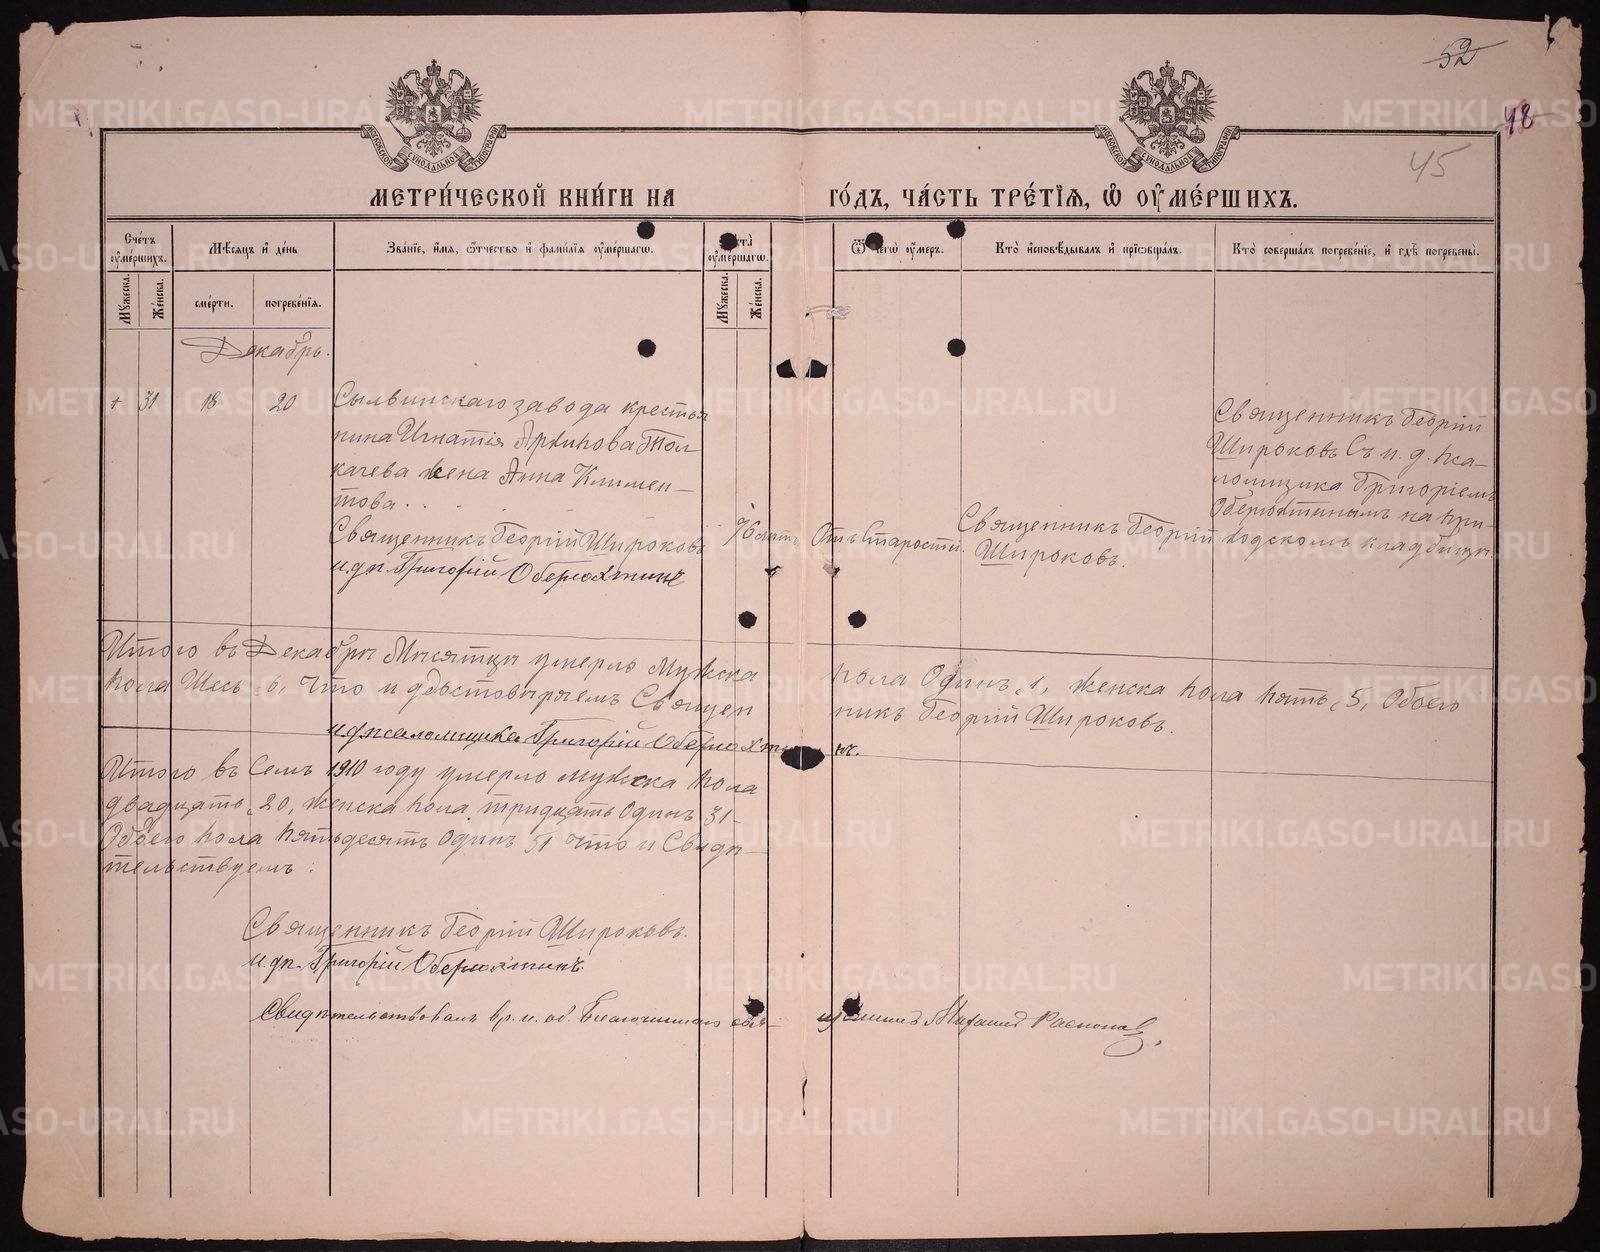 52
48
45
МОСКОВСКОЙ СѴНОДАЛЬНОЙ ТИПОГРАФІИ
МОСКОВСКОЙ СѴНОДАЛЬНОЙ ТИПОГРАФІИ
МЕТРИ́ЧЕСКОЙ КНИ́ГИ НА ГО́ДЪ, ЧА́СТЬ ТРЕ́ТІЯ, Ѡ ОУМЕ́РШИХЪ.
Сче́тъ оуме́ршихъ.
Мꙋ́жеска.
Же́нска.
Мѣ́сяцъ и҆ де́нь
сме́рти.
погребе́нїя.
Зва́нїе, и҆́мя, ѻ҆́тчество и҆ фами́лїя оуме́ршагѡ.
оуме́ршагѡ.
Мꙋ́жеска.
Же́нска.
оу́меръ.
Кто̀ и҆сповѣ́дывалъ и҆ прїѡбща́лъ.
Кто̀ соверша́лъ погребе́нїе, и҆ гдѣ̀ погребены̀.
Декабрь.
+ 31 18 20
Сылвинскаго завода крестья
нина Игнатія Архипова Тол
качева жена Анна Климен–
това.
Священникъ Георгій Широковъ
и.дп. Григорій Оберюхтинъ
76 лѣтъ
Отъ Старости.
Священникъ Георгій
Широковъ.
Священникъ Георгій
Широковъ Съ и. д. пса–
ломщика Григоріемъ
Оберюхтинымъ на при–
ходскомъ кладбищѣ.
Итого въ Декабрѣ Мѣсяцѣ умерло Мужска пола Одинъ, 1, женска пола пять, 5, Обоего
пола Шесь, 6, Что и удостовѣряемъ Священ никъ Георгій Широковъ.
и.д. псаломщика Григорій Оберюхтинъ.
Итого въ Семъ 1910 году умерло мужска пола
двадцать, 20, женска пола тридцать Одинъ 31–
Обоего пола пятьдесятъ Одинъ 51 Что и Свидѣ–
тельствуемъ:
Священникъ Георгій Широковъ.
и.дп. Григорій Оберюхтинъ.
Свидѣтельствовалъ вр. и. об. Благочиннаго свя– щенникъ Михаилъ
METRIKI.GASO-URAL.RU